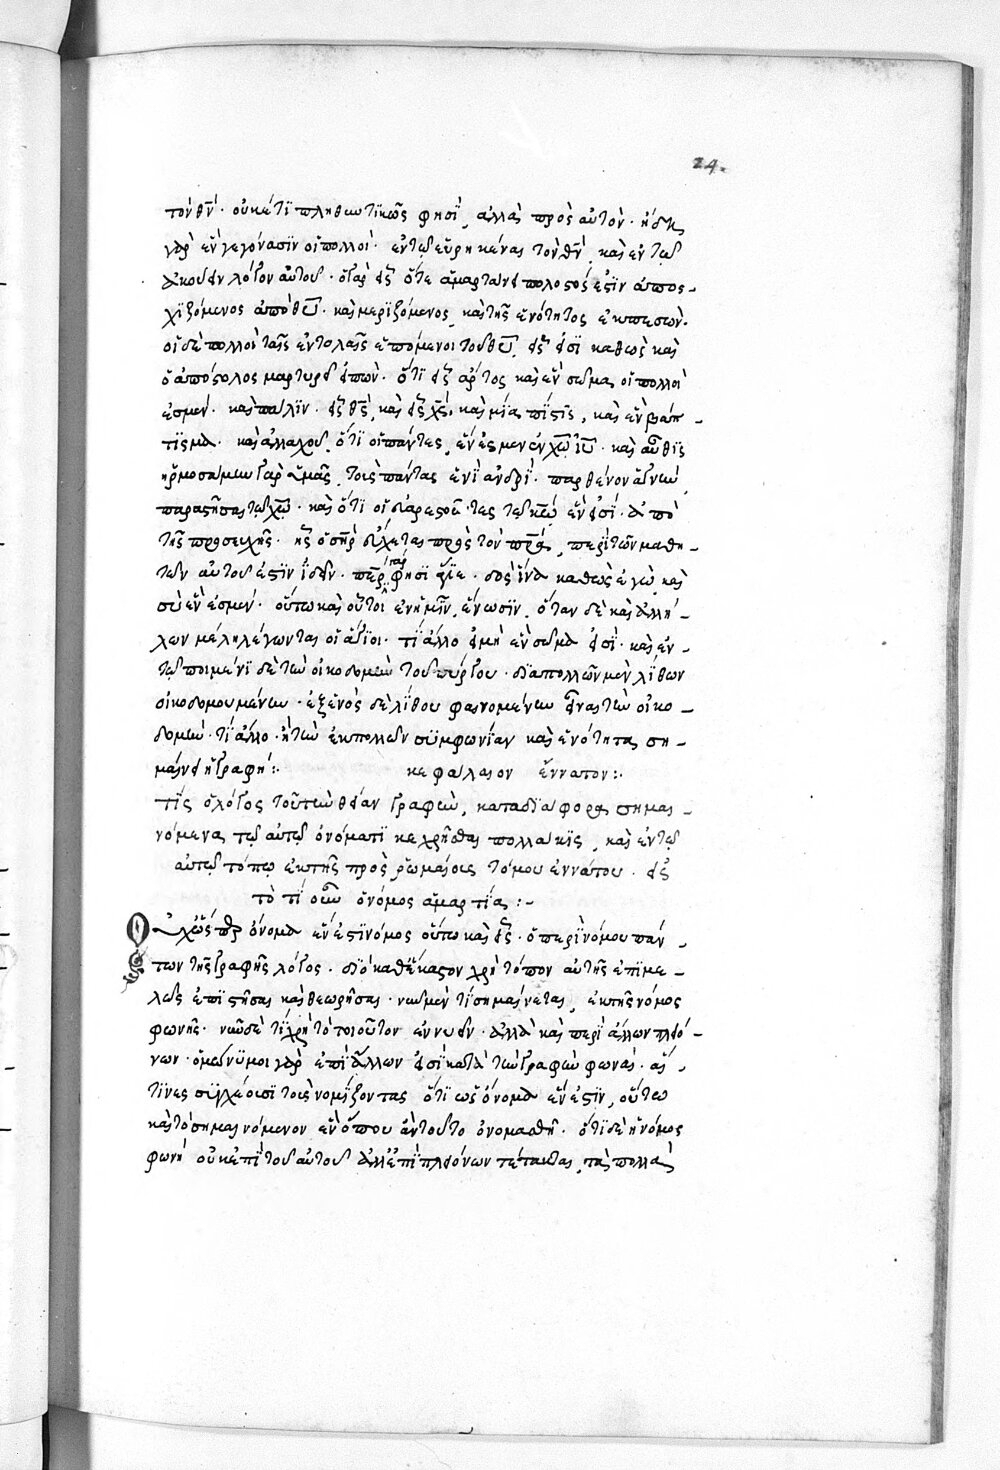 24.
τὸν θν̅· οὐκέτι πληθυντικῶς φησὶ, ἀλλὰ πρὸς αὐτὸν· ἤδη
γὰρ ἓν γεγόνασιν οἱ πολλοὶ· ἐν τῷ εὑρηκέναι τὸν θν̅, καὶ ἐν τῷ
ἀκούειν λόγον αὐτοῦ· ὁ γὰρ εἷς ὅτε ἁμαρτάνει πολοστός ἐστιν ἀποσ-
χιζόμενος ἀπὸ θυ̅· καὶ μεριζόμενος, καὶ τῆς ἑνότητος ἐκπεσών.
οἱ δὲ πολλοὶ ταῖς ἐντολαῖς ἑπόμενοι τοῦ θυ̅, εἷς εἰσὶ καθὼς καὶ
ὁ ἀπόστολος μαρτυρεῖ εἰπὼν· ὅτι εἷς ἄρτος καὶ ἓν σῶμα οἱ πολλοὶ
ἐσμέν· καὶ πάλιν· εἷς θς̅, καὶ εἷς χς̅, καὶ μία πίστις, καὶ ἓν βάπ-
τισμα· καὶ ἀλλαχοῦ, ὅτι οἱ πάντες, ἕν ἐσμεν ἐν χω̅ ιυ̅· καὶ αὖθις
ἡρμοσάμην γὰρ ὑμᾶς, τοὺς πάντας ἑνὶ ἀνδρὶ· παρθένον ἁγνὴν
παραστῆσαι τῷ χω̅· καὶ ὅτι οἱ εὐαρεστοῦντες τῷ κω̅ ἓν εἰσί· ἀπὸ
τῆς προσευχῆς· ἧς ὁ σηρ̅ εὔχεται πρὸς τὸν πρα̅, περὶ τῶν μαθη-
τῶν αὐτοῦ ἐστὶν ἰδεῖν· περ γάρ φησι ἅγιε· δὸς ἵνα καθὼς ἐγὼ καὶ
σὺ ἕν ἐσμεν· οὕτω καὶ οὗτοι ἐν ἡμῖν, ἓν ὦσιν, ὅταν δὲ καὶ ἀλλή-
λων μέλη λέγωνται οἱ ἅγιοι· τί ἄλλο εἰ μὴ ἓν σῶμα εἰσὶ· καὶ ἐν
τῷ ποιμένι δὲ τὴν οἰκοδομὴν τοῦ πύργου· διὰ πολλῶν μὲν λίθων
οἰκοδομουμένην· ἐξ ἑνὸς δὲ λίθου φαινομένην εἶναι τὴν οἰκο-
δομήν· τί ἄλλο· ἢ τὴν ἐκ πολλῶν συμφωνίαν καὶ ἑνότητα, ση-
μαίνει ἡ γραφή:· κεφάλαιον ἔννατον:·
τίς ὁ λόγος τοῦ τὴν θείαν γραφὴν, κατὰ διάφορα σημαι-
νόμενα τῷ αὐτῷ ὀνόματι κεχρῆσθαι πολλάκις, καὶ ἐν τῷ
αὐτῷ τόπῳ ἐκ τῆς πρὸς ῥωμαίους τόμου ἐννάτου· εἰς
τὸ τί οὖν ὁ νόμος ἁμαρτία:·
Οὐχ ὥσπερ ὄνομα ἕν ἐστι νόμος οὕτω καὶ εἷς· ὁ περὶ νόμου πάν-
των τῆς γραφῆς λόγος· διὸ καθ' ἕκαστον χρὴ τόπον αὐτῆς ἐπιμε-
λῶς ἐπιστῆσαι καὶ θεωρῆσαι· νῦν μὲν τί σημαίνεται, ἐκ τῆς νόμος
φωνῆς· νῦν δὲ τί χρὴ τὸ τοιοῦτον ἐννοεῖν· ἀλλὰ καὶ περὶ ἄλλων πλειό-
νων· ὁμώνυμοι γὰρ ἐπὶ ἄλλων εἰσὶ κατὰ τὴν γραφὴν φωναὶ· αἵ-
τινες συγχέουσι τοὺς νομίζοντας ὅτι ὡς ὄνομα ἕν ἐστιν, οὕτω
καὶ τὸ σημαινόμενον ἓν ὅπου ἂν τοῦτο ὀνομασθῇ· ὅτι δὲ ἡ νόμος
φωνὴ οὐκ ἐπὶ τοῦ αὐτοῦ ἀλλ' ἐπὶ πλειόνων τέτακται, τὰ πολλὰ